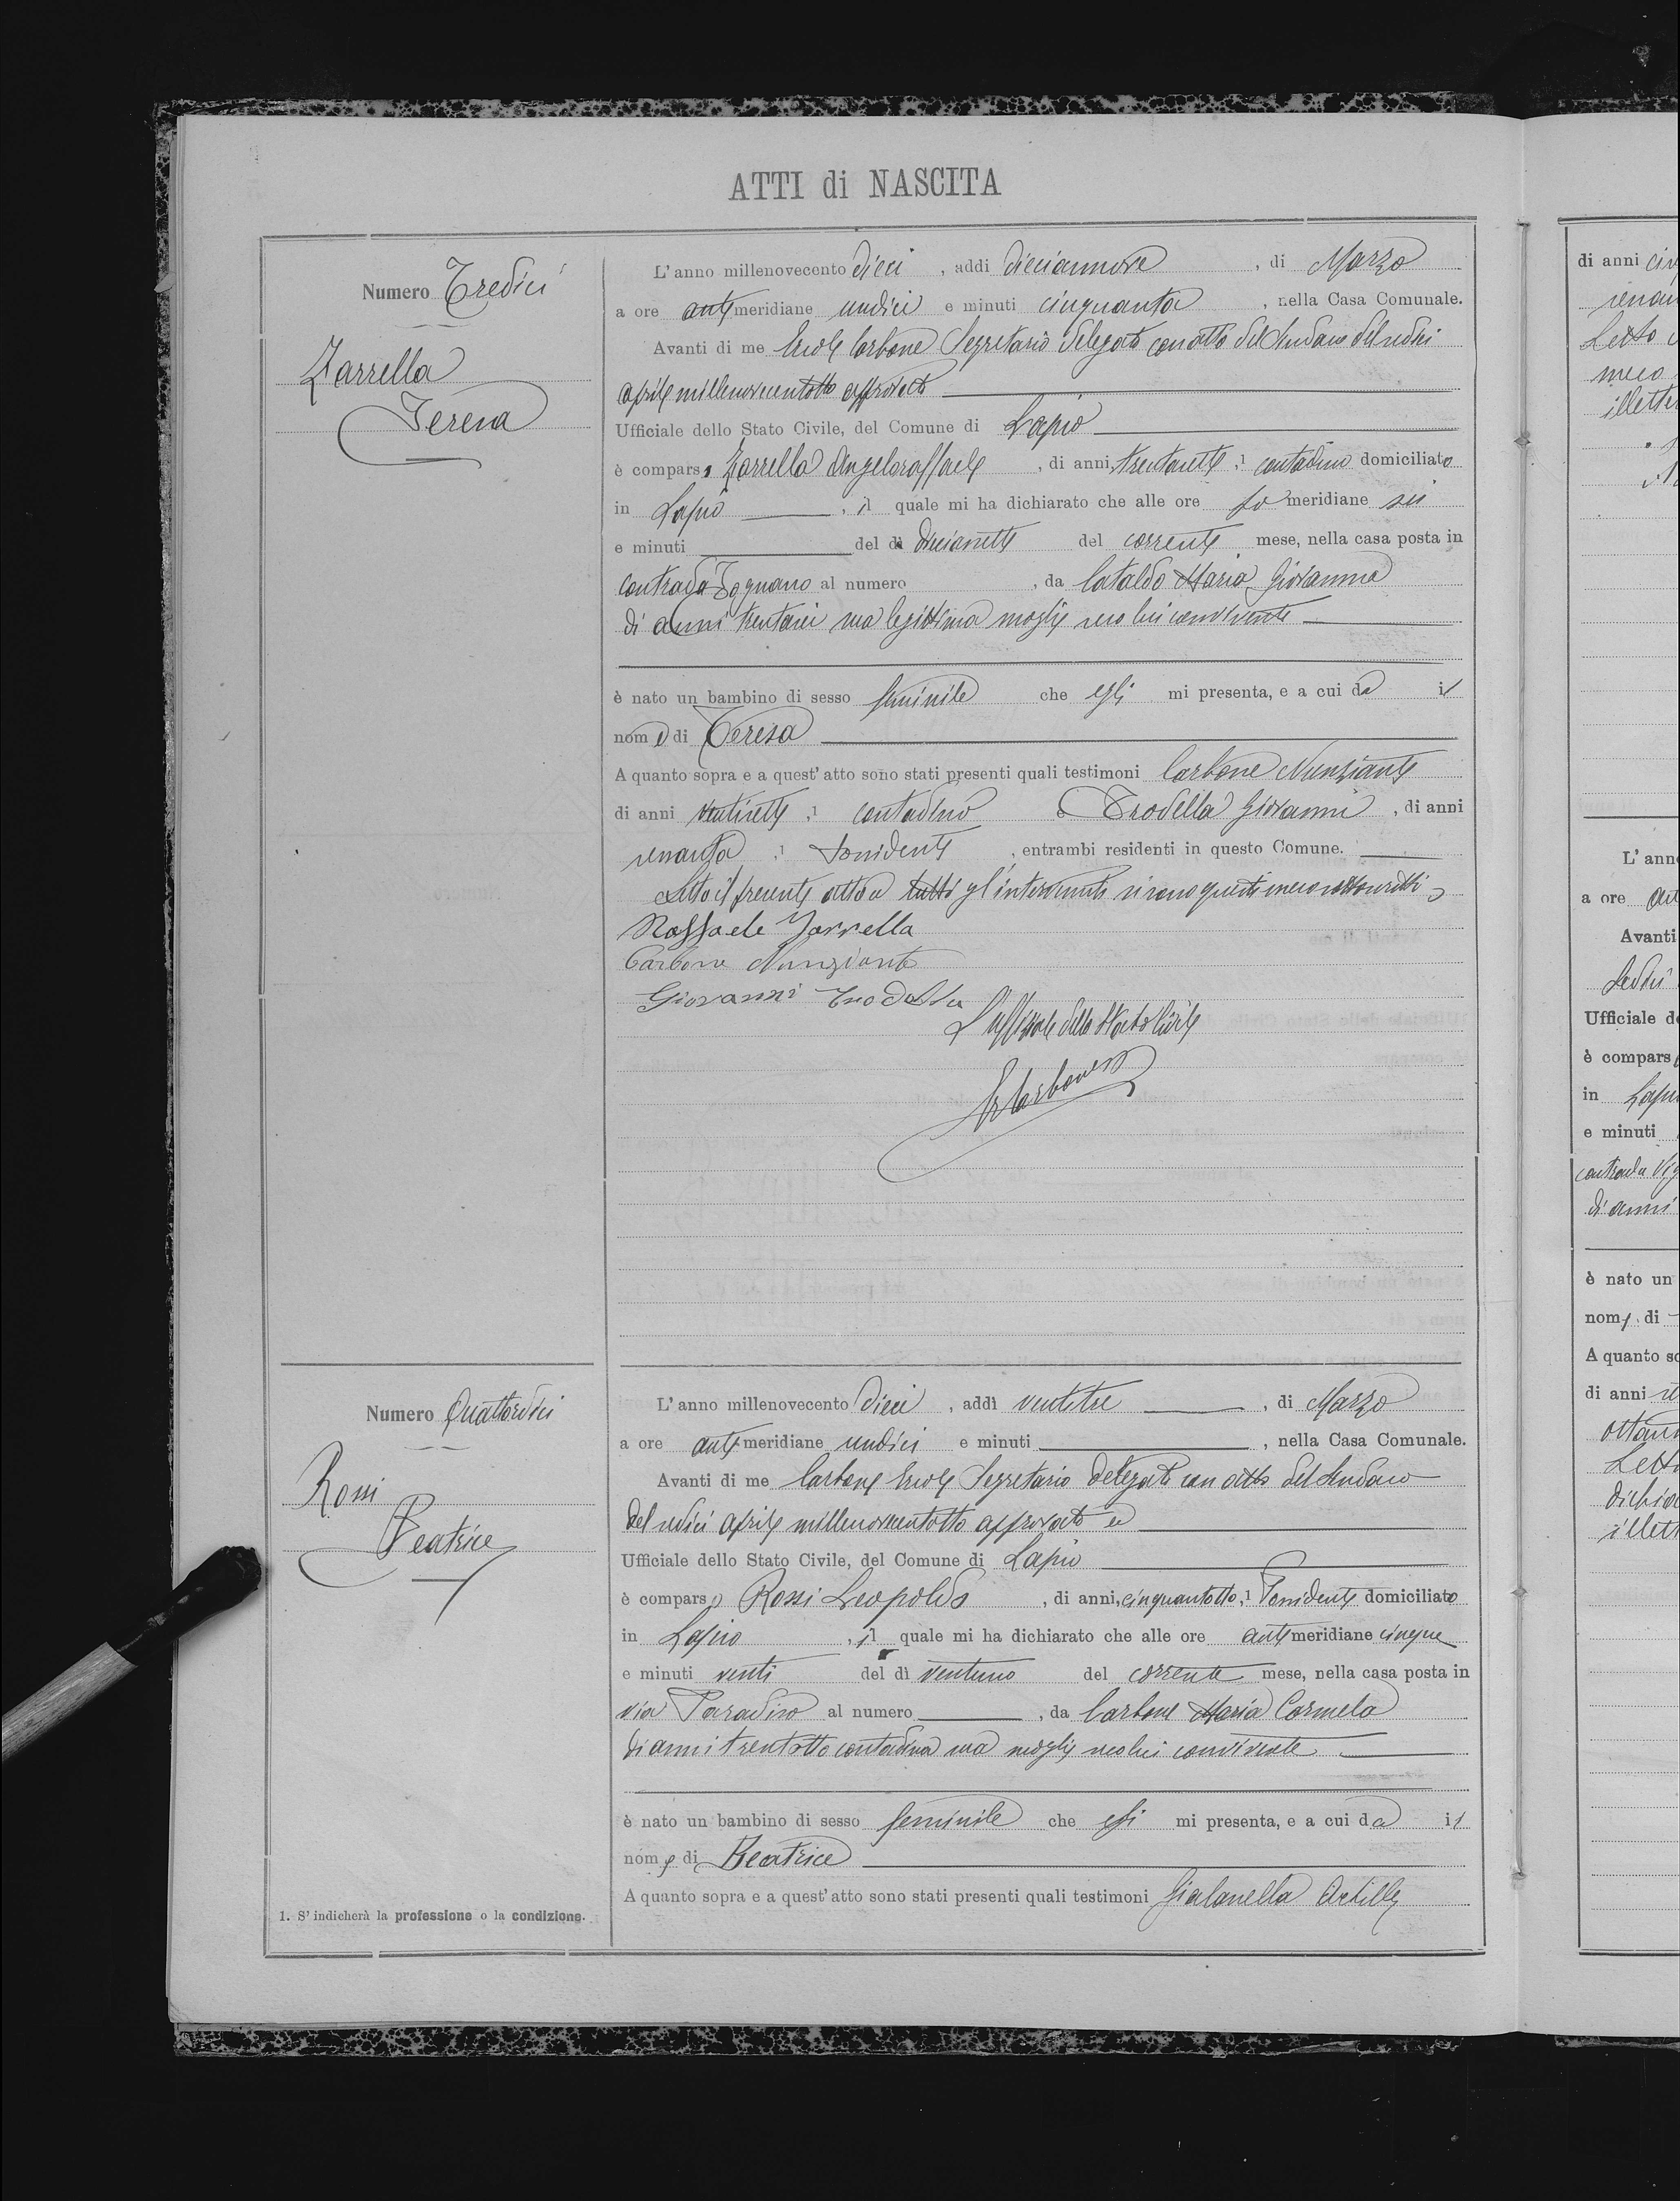 ATTI di NASCITA
Numero Tredici
Zarrella
Teresa
L'anno millenovecento dieci, addì diciannove, di Marzo
a ore antimeridiane undici e minuti cinquanta, nella Casa Comunale.
Avanti di me Ercole Carbone Segretario delegato con atto del Sindaco del sedici
aprile millenovecentotto approvato
Ufficiale dello Stato Civile, del Comune di Lapio
è comparso Zarrella Angeloraffaele, di anni trentasette, 1 contadino domiciliato
in Lapio, il quale mi ha dichiarato che alle ore po meridiane sei
e minuti del dì diciasette del corrente mese, nella casa posta in
contrada al numero, da Cataldo Maria Giovanna
di anni trentasei sua legittima moglie seco lui convivente
è nato un bambino di sesso feminile che egli mi presenta, e a cui da il
nome di Teresa
A quanto sopra e a quest'atto sono stati presenti quali testimoni Carbone Nunziante
di anni ventisette, 1 contadino Trodella Giovanni, di anni
sessanta, 1 possidente, entrambi residenti in questo Comune.
Letto il presente atto a tutti gl'intervenuti si sono questi meco sottoscritti
Raffaele Zarrella
Carbone Nunziante
Giovanni Trodella
L'uffiziale dello Stato Civile
E. Carbone
Numero Quattordici
Rossi
Beatrice
L'anno millenovecento dieci, addì ventitre, di Marzo
a ore antimeridiane undici e minuti, nella Casa Comunale.
Avanti di me Carbone Ercole Segretario delegato con atto del Sindaco
del sedici aprile millenovecentotto approvato
Ufficiale dello Stato Civile, del Comune di Lapio
è comparso Rossi Leopoldo, di anni, cinquantotto, 1 Possidente domiciliato
in Lapio, il quale mi ha dichiarato che alle ore antimeridiane cinque
e minuti venti del dì ventuno del corrente mese, nella casa posta in
via Paradiso al numero, da Carbone Maria Carmela
di anni trentotto contadina sua moglie seco lui convivente
è nato un bambino di sesso feminile che egli mi presenta, e a cui da il
nome di Beatrice
A quanto sopra e a quest'atto sono stati presenti quali testimoni Gialanella Achille
1. S'indicherà la professione o la condizione.
di anni
Letto
meco
L'ann
a ore
Avanti
Ufficiale d
è compars
in Lapi
e minuti
contrada
di anni
è nato un
nome di
A quanto so
di anni